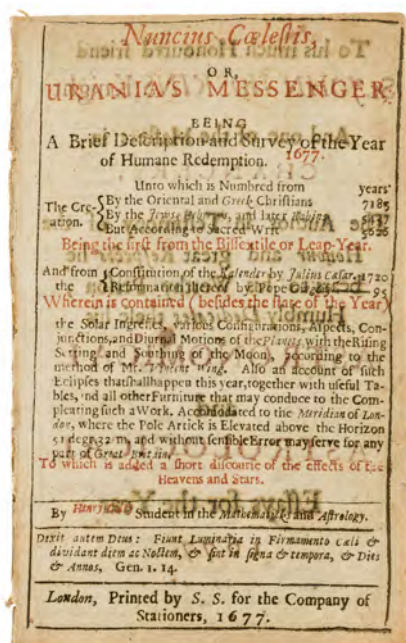 Nuncius Cœlestis,
OR,
URANIA'S MESSENGER,
BEING
A Brief Description and Survey of the Year
of Humane Redemption. 1677.
Unto which is Numbred from years
The Cre-ation. By the Oriental and Greek Christians 7185
By the Jewes Hebrews, and later Rabins 5437
But According to Sacred Writ 5626
Being the first from the Bissextile or Leap-Year.
And from the Constitution of the Kalender by Julius Cæsar. 1720
Reformation thereof by Pope Gregory 95
Wherein is contained (besides the state of the Year)
the Solar Ingresses, various Configurations, Aspects, Con-
junctions, and Diurnal Motions of the Planets, with the Rising
Setting and Southing of the Moon), according to the
method of Mr. Vincent Wing. Also an account of such
Eclipses that shall happen this year, together with useful Ta-
bles, and all other Furniture that may conduce to the Com-
pleating such a Work. Accomodated to the Meridian of Lon-
don, where the Pole Artick is Elevated above the Horizon
51 degr. 32 m. and without sensible Error may serve for any
part of Great Britain.
To which is added a short discourse of the effects of the
Heavens and Stars.
By Henry Student in the Mathematicks and Astrology.
Dixit autem Deus: Fiunt Luminaria in Firmamento Cæli &
dividant diem ac Noctem, & sint in signa & tempora, & Dies
& Annos, Gen. 1. 14.
London, Printed by S. S. for the Company of
Stationers, 1677.